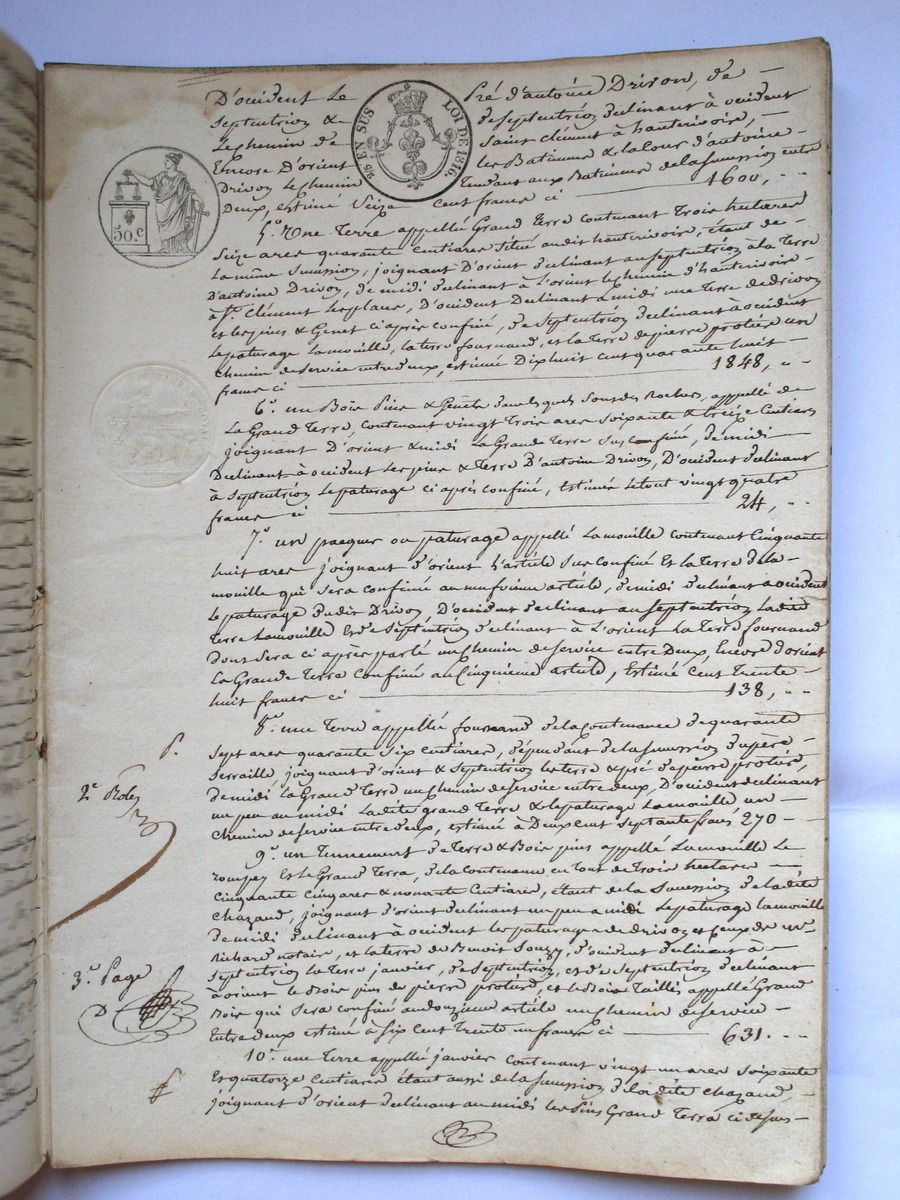 D'occident Le Pré d'antoine Drivon, de
Septentrion & de Septentrion déclinant à occident
Le chemin de Saint Clément à hauterivoire,
Encore D'orient les Batiments & la Cour d'antoine
Drivon Le chemin Tendant aux Batiments de la Succession entre
Deux, estimé Seize Cent francs ci 1600, " "
2/5 EN SUS LOI DE 1816.
50.C
5°. Une Terre appellé Grand Terra contenant Trois hectares
Seize ares quarante Centiares Situé audit hauterivoire, étant de
La même Succession, joignant D'orient déclinant au septentrion à la Terre
D'antoine Drivon, de midi déclinant à L'orient le chemin d'hauterivoire
à St. Clément Les places, D'occident Déclinant à midi une Terre de Drivon
et les pins & Genet ci après confiné, de Septentrion déclinant à occident
Le paturage Lamouille, la terre fournand, et la terre de pierre protière un
Chemin de Service entre deux, estimé Dix huit Cent quarante huit
francs ci 1848, "
6°. un Bois Pins & Genêts dans lesquels Sont des Rochers, appellé de
La Grand Terre, contenant vingt Trois ares Soixante & treize Centiares
joignant D'orient & midi La Grande Terre Sus confiné, de midi
Déclinant à occident Les pins & Terre D'antoine Drivon, D'occident déclinant
à Septentrion Le paturage ci après confiné, Estimée le tout vingt quatre
francs ci 24, " "
7°. un paequer ou paturage appellé Lamouille contenant Cinquante
huit ares joignant d'orient L'article Sus confiné Et la Terre de la
mouille qui Sera confiné au neufvieme article, de midi déclinant à occident
Le paturage dudit Drivon, D'occident déclinant au Septentrion Ladite
Terre Lamouille Et de Septentrion déclinant à L'orient La Terre fournand
dont Sera ci après parlé un chemin de Service entre Deux, Encore d'orient
La Grande Terra Confiné au Cinquieme article, Estimé Cent Trente
huit francs ci 138, " "
8°. une Terre appellée fournand de la Contenance de quarante
Sept ares quarante Six Centiares, dépendant de la Succession du père
Serraille, joignant d'orient & Septentrion les terre & pré de pierre protière,
de midi La Grand Terra un chemin de Service entre deux, D'occident déclinant
un peu au midi Ladite grand Terra & le paturage Lamouille, un
Chemin de Service entre deux, estimé à Deux Cent Septante francs 270
2e. Roles
9°. un Tennement de Terre & Bois pins appellé Lamouille Le
rompay Et le Grand Terra, de la Contenance en Tout de Trois hectares
Cinquante Cinq ares & nonante Centiares, étant de la Succession de ladite
Chazaud, joignant d'orient déclinant un peu à midi Le paturage lamouille
de midi déclinant à occident les paturages de drivon et Ceux de
Richard notaire, et la terre de Benoit Souzy, d'occident déclinant à
Septentrion la Terre janvier, de Septentrion, et de Septentrion déclinant
à orient le Bois pins de pierre protière, et le Bois Taillis appellé Grand
Bois qui Sera confiné au douzieme article un chemin de Service
Entre deux estimé à Six Cent Trente un francs ci 631. " "
3e. Page
10°. une Terre appellé janvier contenant vingt un ares Soixante
Et quatorze Centiares étant aussi de la Succession de ladite Chazaud,
joignant d'orient déclinant au midi les pins Grand Terra ci dessus